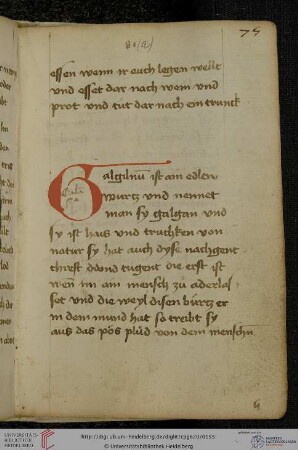 75
essen wenn ir euch legen welt
und esset dar nach wein und
prot und tut dar nach ein trunck
Galgilnum ist ain edlew
wurtz und nennet
man sy galgan und
sy ist hais und truchken von
natur sy hat auch dyse nachgent
chreft und tugent die erst ist
wenn im ain mensch zu aderlas
set und die weyl disen wurtz er
in dem mund hat so treibt sy
aus das pös plud von dem menschn
UNIVERSITÄTS-
BIBLIOTHEK
HEIDELBERG
© Universitätsbibliothek Heidelberg